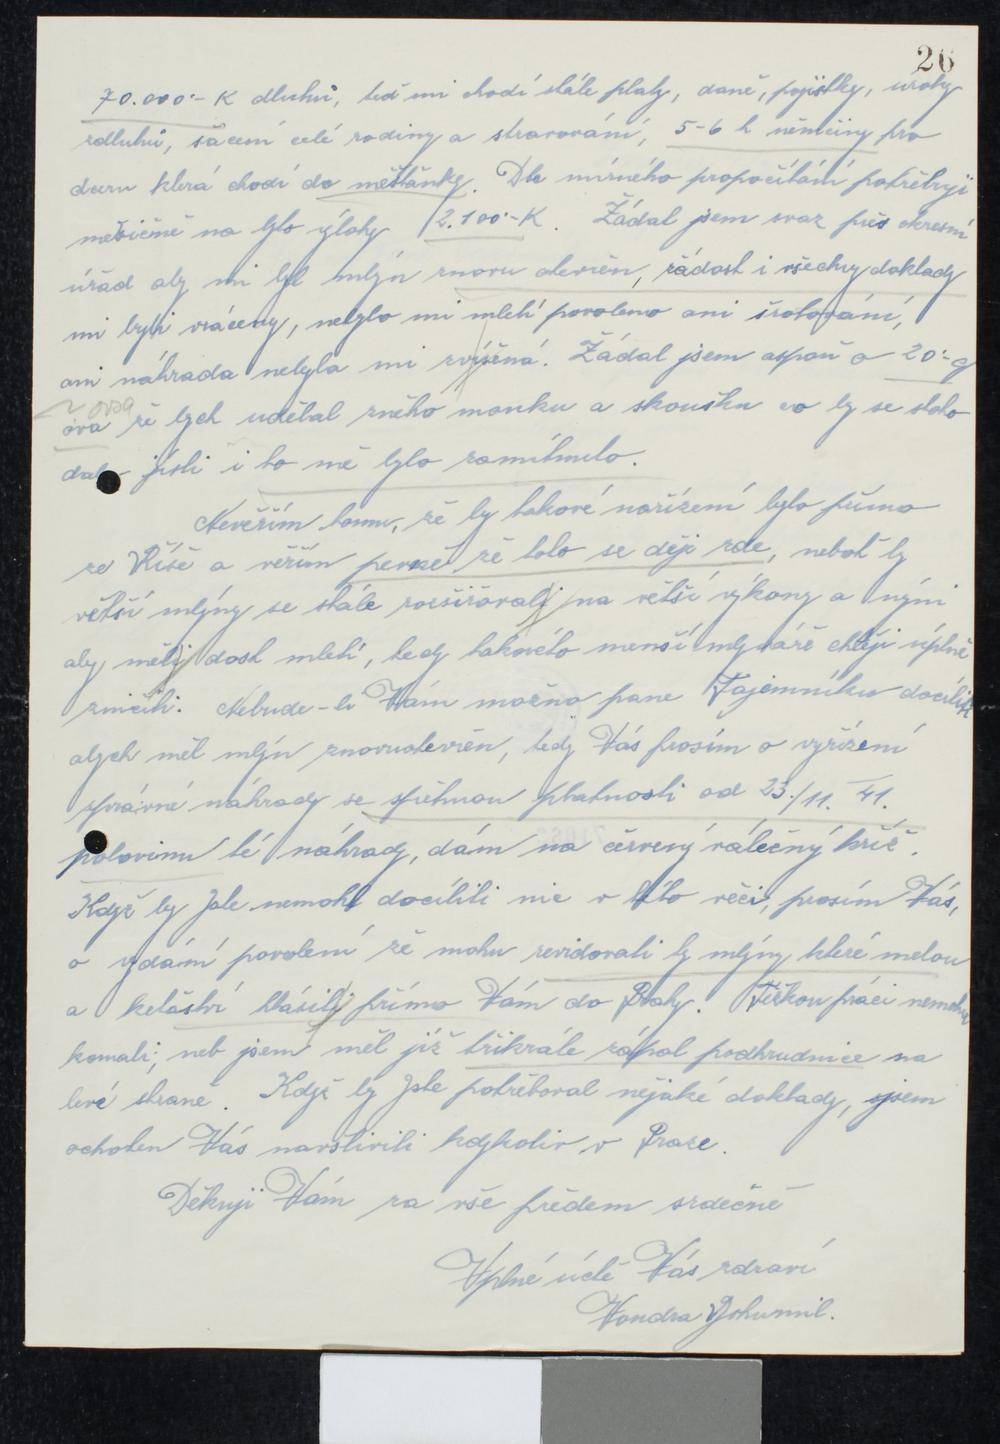 26
70.000·- K dluhu, teď mi chodí stále platy, daně, pojistky, úroky
zdluhu, šacení celé rodiny a stravování, 5-6 h němčiny pro
dceru která chodí do měšťanky. Dle mírného propočítání potřebuji
měsíčně na tyto výlohy 2.100·- K. Žádal jsem svaz přes okresní
úřad aby mi byl mlýn znovu otevřen, žádost i všechny doklady
mi byli vráceny, nebylo mi mletí povoleno ani šrotování,
ani náhrada nebyla mi zvýšená. Žádal jsem aspoň o 20·- q
ova
ova že bych udělal z něho mouku a zkoušku co by se z toho
dalo jísti i to mě bylo zamítnuto.
Nevěřím tomu, že by takové nařízení bylo přímo
ze Říše a věřím pevně, že toto se děje zde, neboť by
větší mlýny se stále rozšiřovaly na větší výkony a nyní
aby měly dost mletí, tedy takovéto menší mlynáře chtěji úplně
zničit. Nebude-li Vám možno pane Tajemníku docíliti
abych měl mlýn znovuotevřen, tedy Vás prosím o vyřízení
správné náhrady se zpětnou platností od 23./11. 41.
polovinu té náhrady, dám na červený válečný kříž.
Když by Jste nemohl docíliti nic v této věci, prosím Vás,
o vydání povolení že mohu revidovati ty mlýny které melou
a keťasství hlásily přímo Vám do Prahy. Těžkou práci nemohu
konati; neb jsem měl již třikrále zápal podhrudnice na
levé straně. Když by Jste potřeboval nějaké doklady, jsem
ochoten Vás navštíviti kdykoliv v Praze.
Děkuji Vám za vše předem srdečně
V plné úctě Vás zdraví
Vondra Bohumil.